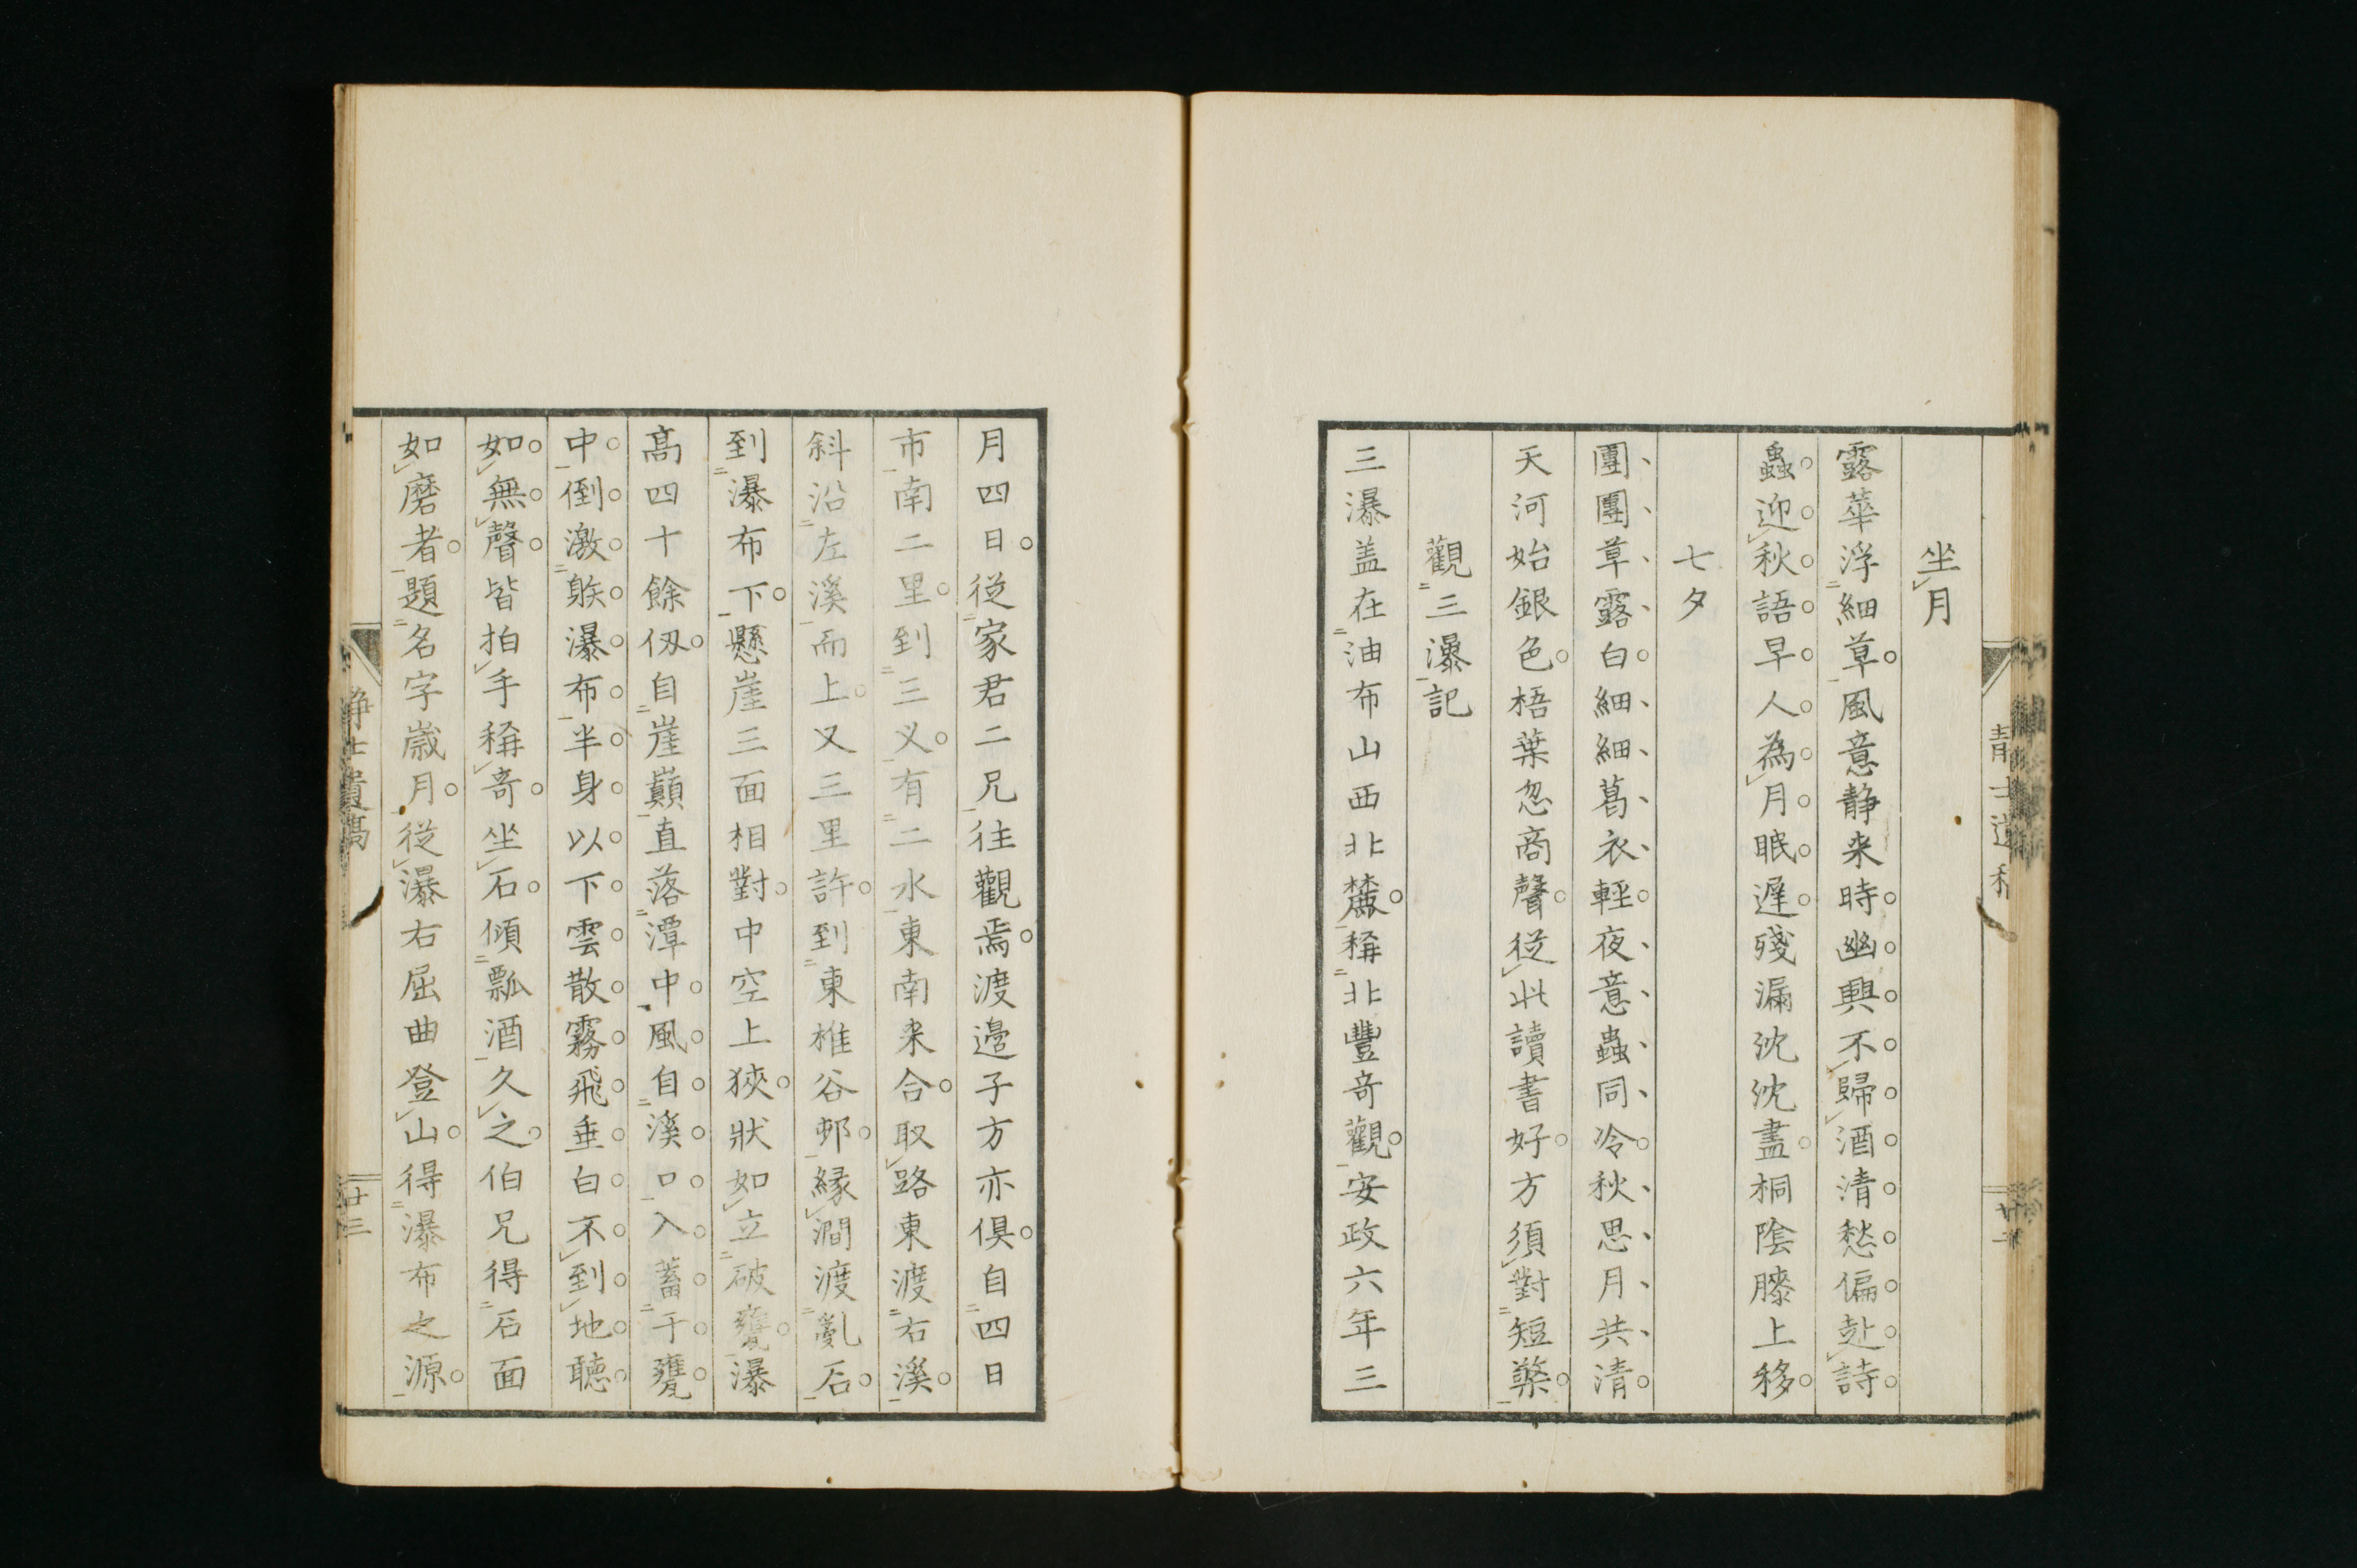 坐月
露華浮細草風意静来時幽興不歸酒清愁偏赴詩
蟲迎秋語早人為月眠遅殘漏沈沈盡桐陰膝上移
七夕
團團草露白細細葛衣輕夜意蟲同冷秋思月共清
天河始銀色梧葉忽商聲従此讀書好方須對短檠
觀三瀑記
三瀑盖在油布山西北麓稱北豐奇觀安政六年三
月四日従家君二兄往觀焉渡邉子方亦倶自四日
市南二里到三义有二水東南来合取路東渡右溪
斜沿左溪而上又三里許到東椎谷邨縁澗渡亂石
到瀑布下懸崖三面相對中空上狹狀如立破甕瀑
髙四十餘仭自崖巓直落潭中風自溪口入蓄于甕
中倒激躲瀑布半身以下雲散霧飛垂白不到地聴
如無聲皆拍手稱奇坐石傾瓢酒久之伯兄得石面
如磨者題名字歳月従瀑右屈曲登山得瀑布之源
廿三